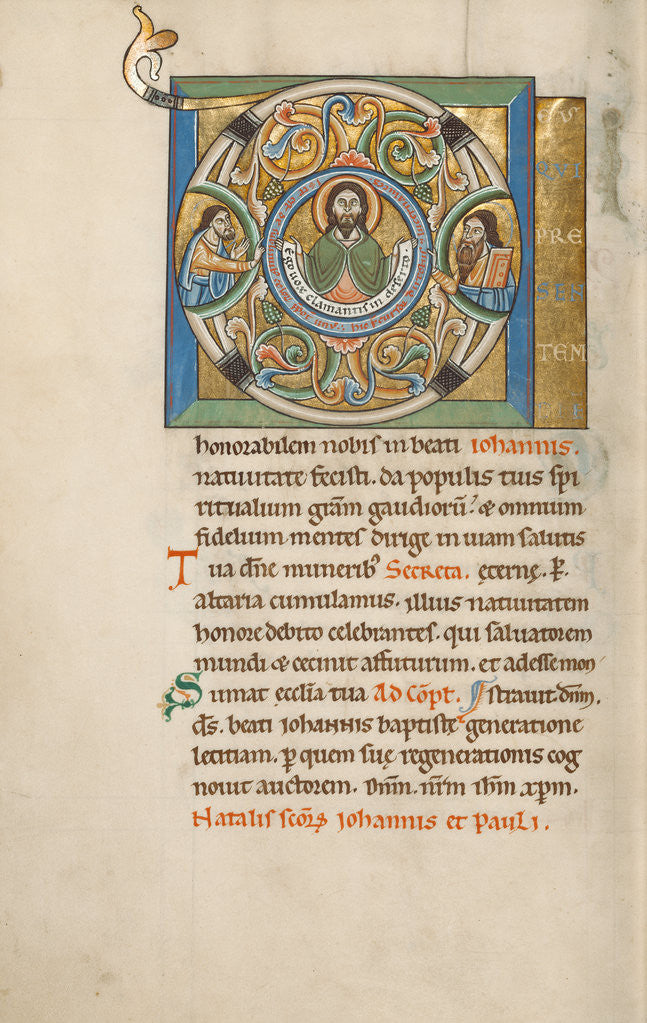 QVI
PRE
SEN
TEM
DIE
Ego vox clamantis in deserto.
honorabilem nobis in beati iohannis.
natiuitate fecisti. da populis tuis spi
ritualium grām gaudiorū? & omnium
fidelium mentes dirige in uiam salutis
Tua dn̄e munerib9 Secreta. ęternę. P.
altaria cumulamus. illius natiuitatem
honore debito celebrantes. qui saluatorem
mundi & cecinit affuturum. et adesse mon
Sumat ecclīa tua Ad Cōpt. strauit. dn̄m.
ds̄. beati iohannis baptistę generatione
letitiam. p quem suę regenerationis cog
nouit auctorem. Dn̄m. nr̄m ihm̄ xpm̄.
Natalis scōrȝ Iohannis et Pauli.